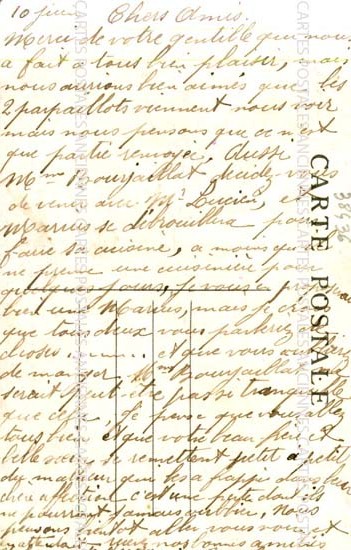 10 juin Chers Amis.
Merci de votre gentille qui nous
a fait à tous bien plaisir, mais
nous aurions bien aimés que les
2 parpaillots viennent nous voir
mais nous pensons que ce n'est
que partie renvoyée, Aussi
Mme Bourjaillat décidez-vous
de venir avec Mr Lucien, et
Marius se débrouillera pour
faire sa cuisine, à moins qu'il
ne prenne une cuisinière pour
quelques jours, Je vous
bien une Marius, mais je crois
que tous deux vous parlerez de
choses et que vous oublierez
de manger, Mme Bourjaillat
serait peut-être pas si tranquille
que cela, Je pense que vous allez
tous bien et que votre beau frère et
belle soeur se remettent petit à petit
du malheur qui les a frappé dans leur
affection c'est une perte dont ils
ne pourront jamais oublier, Nous
pensons bientôt aller vous voir et
recevez nos bonnes amitiés
CARTE POSTALE
38536
CARTES POSTALES ANCIENNES